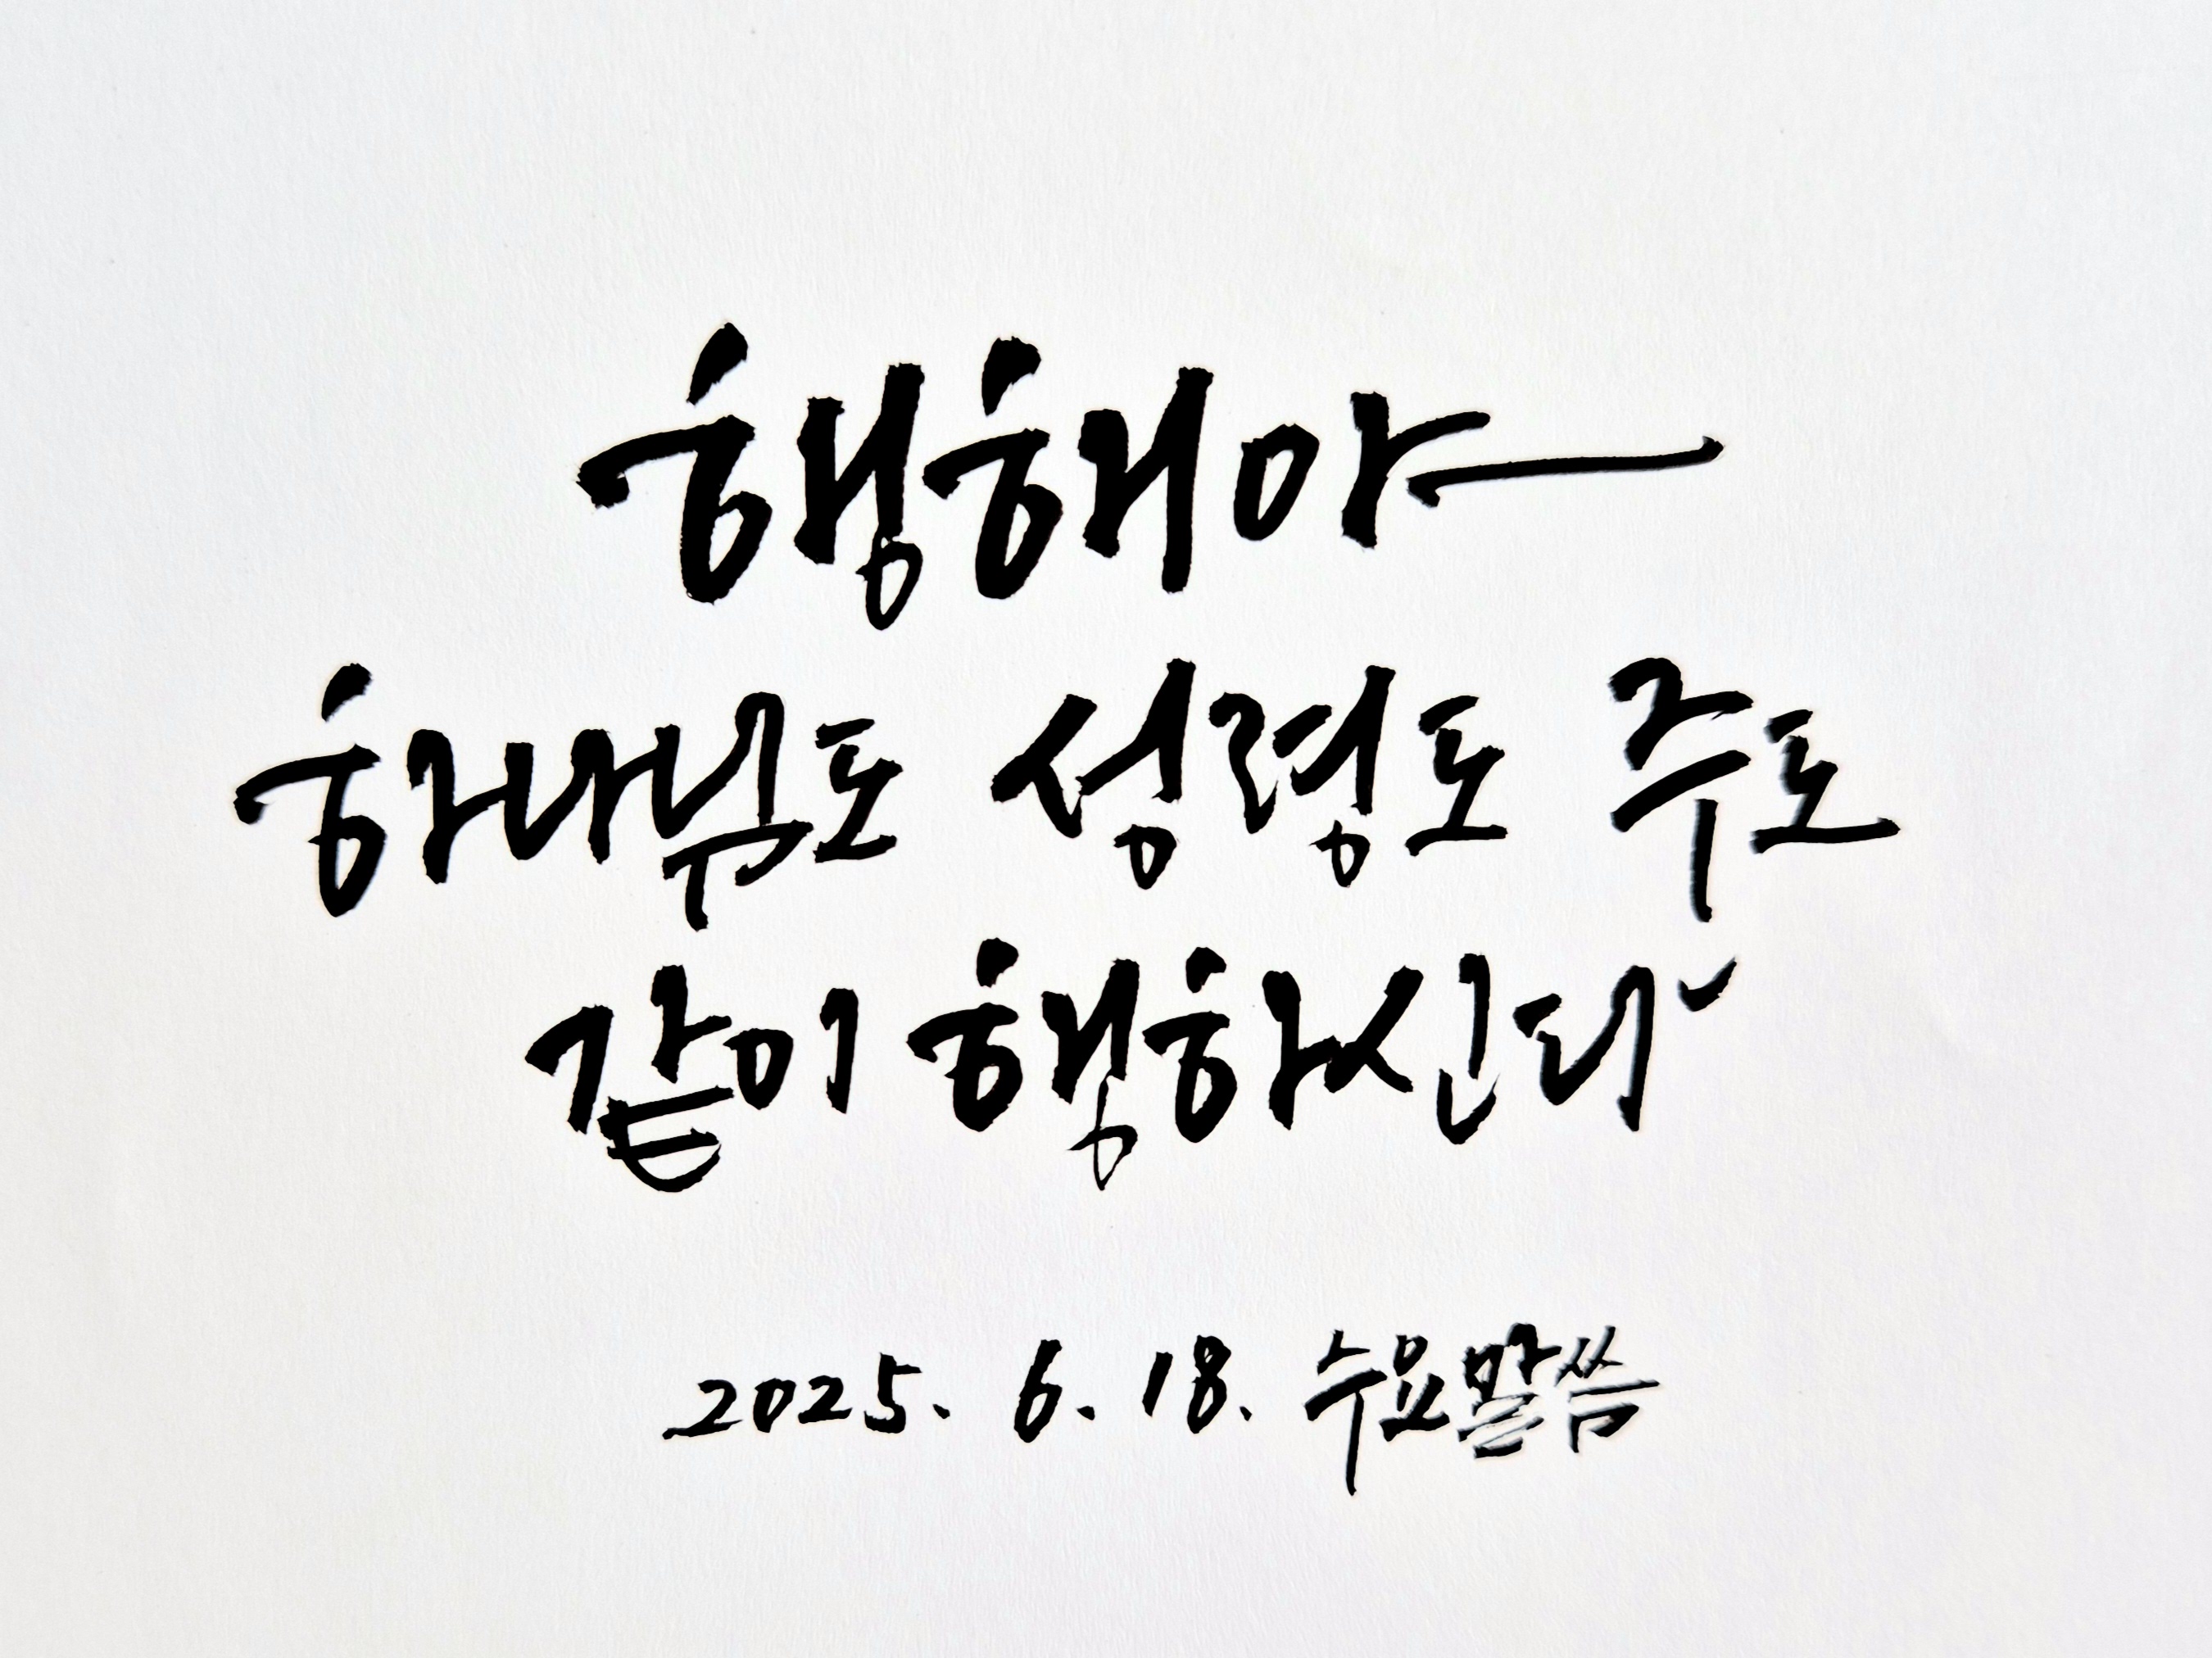 행해야
하나님도 성령도 주도
같이 행하신다
2025. 6. 18. 수요말씀